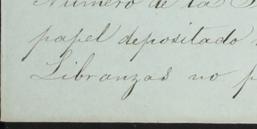 Número de la
papel depositado
Libranzas no